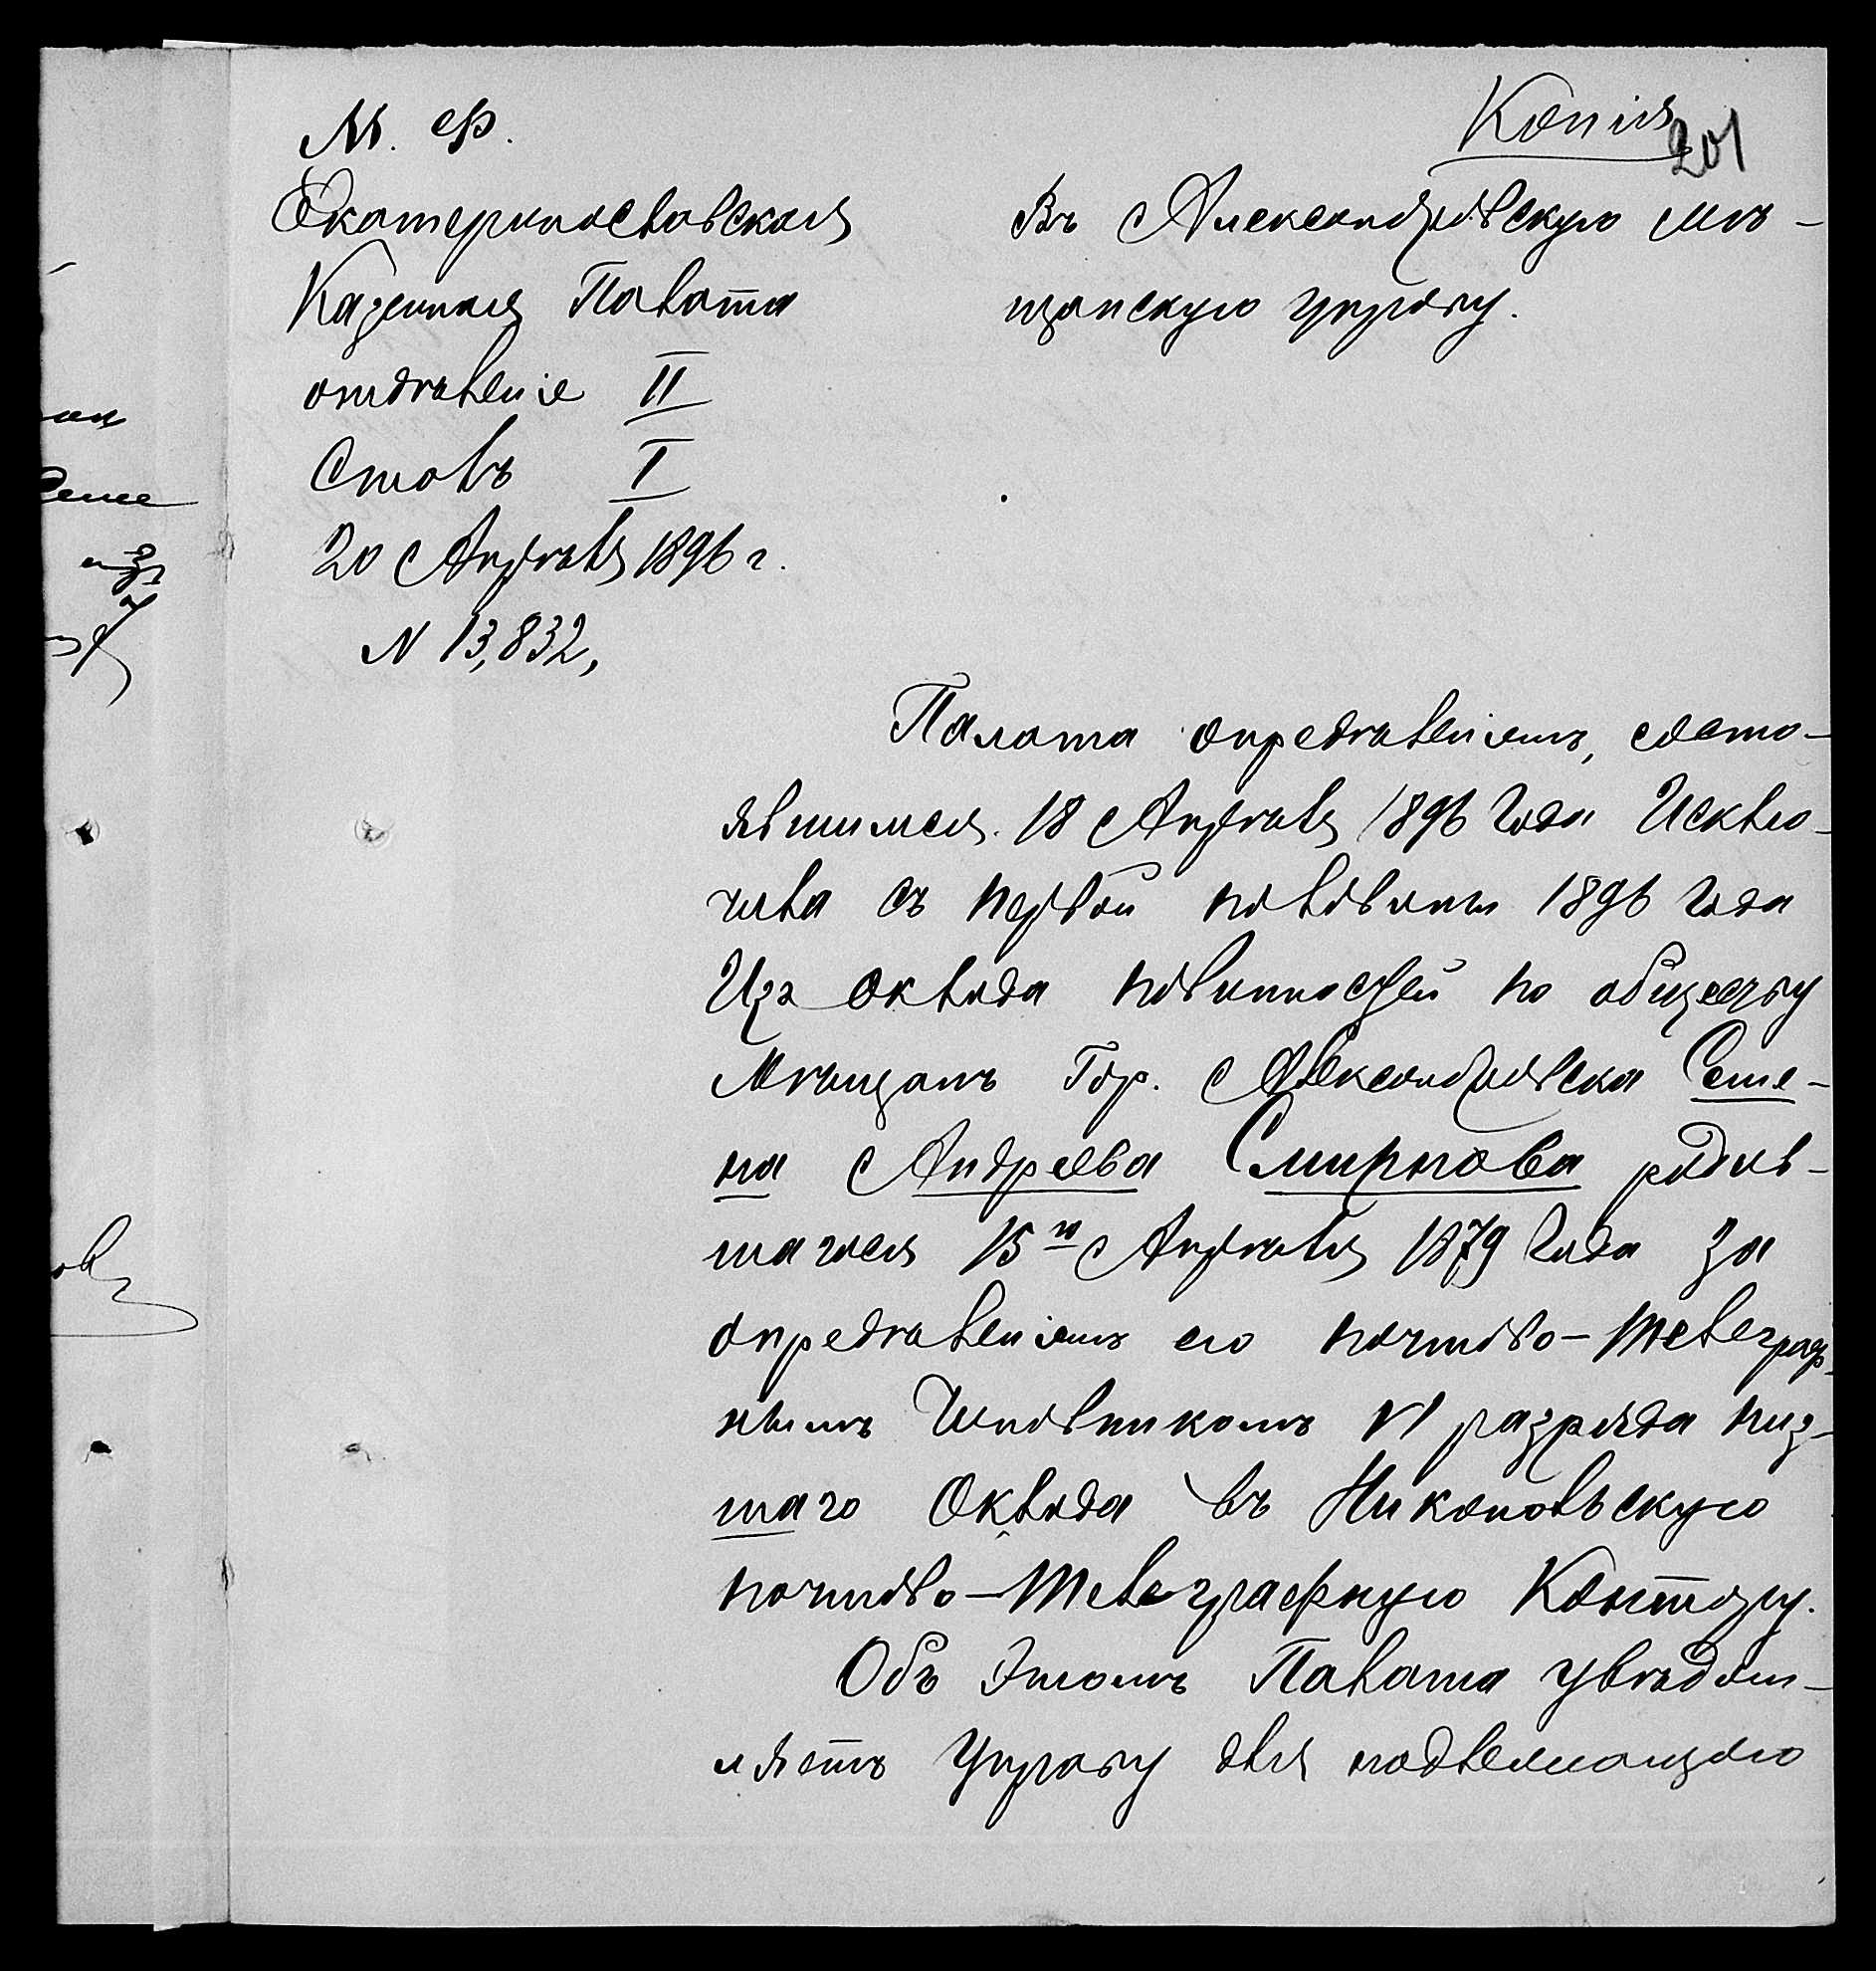 Копія
201
М. Ф.
Екатеринославская
Казенная Палата
отдѣленіе II
Столъ I
20 Апрѣля 1896 г.
N 13,832,
Въ Александровскую мѣ-
щанскую управу.
Палата опредѣленіемъ, состо-
явшимся 18 Апрѣля 1896 года Исклю-
чила съ первой половины 1896 года
Изъ оклада повинностей по обществу
Мѣщанъ Гор. Александровска Семе-
на Андреева Смирнова родив-
шагося 15го Апрѣля 1879 года за
опредѣленіемъ его почтово-телеграф-
нымъ Чиновникомъ VI разряда низ-
шаго Оклада въ Никопольскую
почтово-телеграфную Контору.
Объ этомъ Палата увѣдом-
ляетъ Управу для надлежащаго